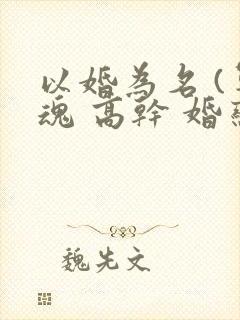 以婚為名（
魂 高幹 婚
魏先文